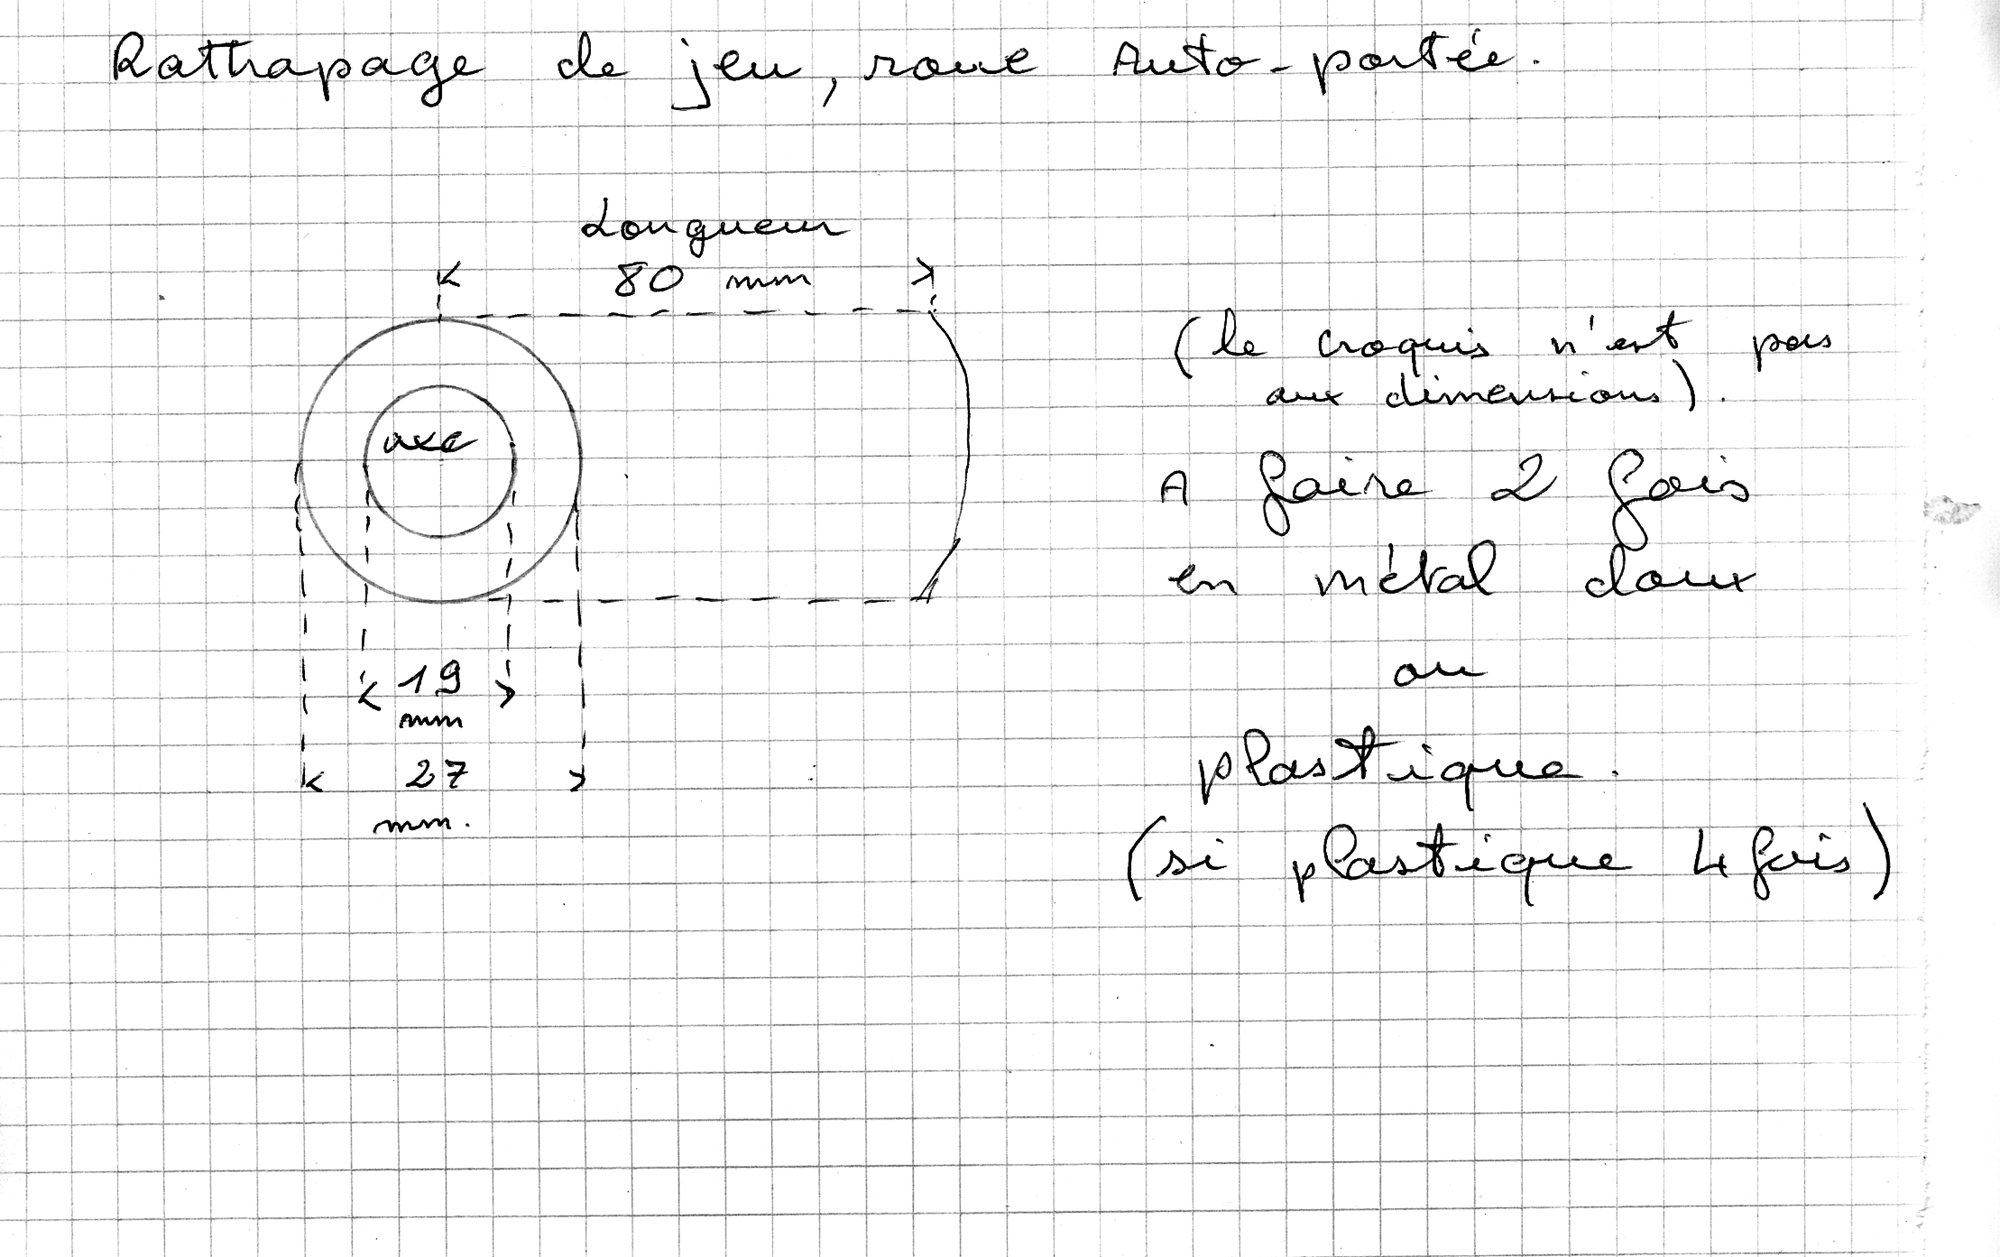 Rattrapage de jeu, roue Auto-portée.
Longueur
80 mm
axe
19
mm
27
mm.
(le croquis n'est pas
aux dimensions).
A faire 2 fois
en métal doux
ou
plastique.
(si plastique 4 fois)